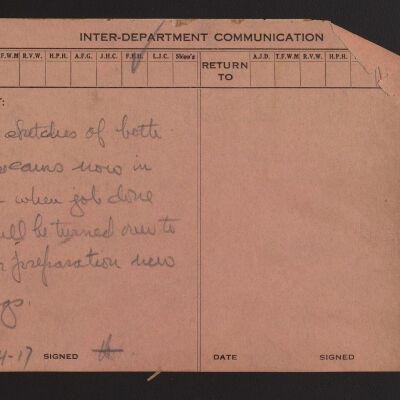 INTER-DEPARTMENT COMMUNICATION
F.W.M R.V.W. H.P.H. A.F.G. J.H.C. F.H.H. L.J.C. Skim'g RETURN TO A.J.D. T.F.W.M R.V.W. H.P.H.
T:
sketches of both
now in
when job done
will be turned over to
preparation new
gs.
4-17 SIGNED H DATE SIGNED